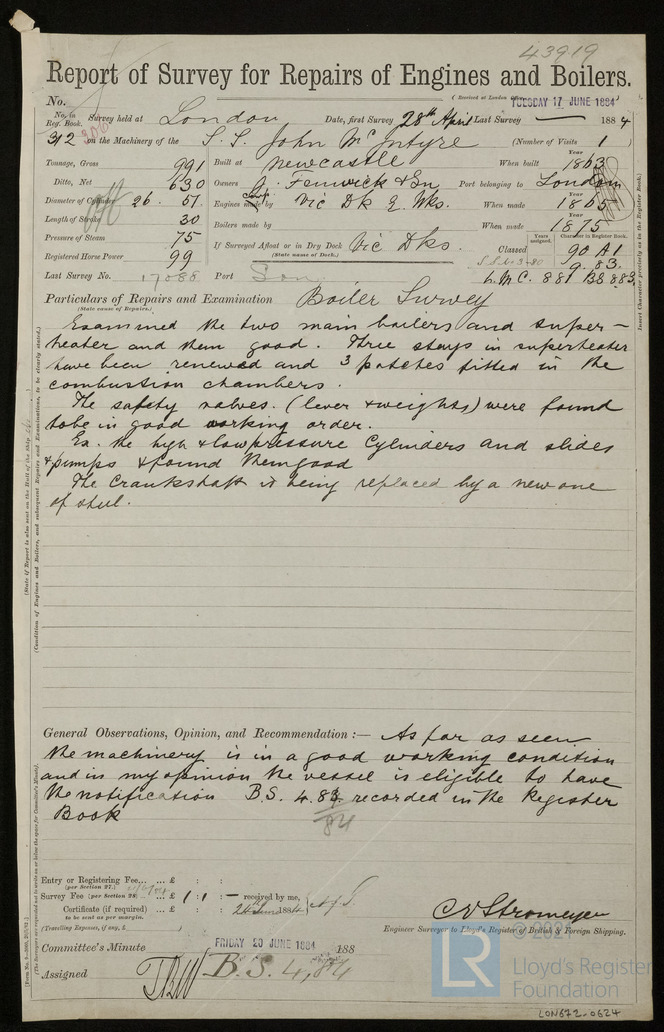 43919
Report of Survey for Repairs of Engines and Boilers.
No.
(Received at London Office
TUESDAY 17 JUNE 1884
No. in Reg. Book. Survey held at London Date, first Survey 28th April Last Survey — 1884
312 on the Machinery of the S.S. John McIntyre (Number of Visits 1 )
Tonnage, Gross 991 Built at Newcastle When built Year 1863
Ditto, Net 630 Owners J. Fenwick & Sn Port belonging to London
Diameter of Cylinder 26. 57 Engines made by Vic Dk E. Wks. When made 1865
Length of Stroke 30 Boilers made by When made Year 1875
Pressure of Steam 75 If Surveyed Afloat or in Dry Dock Vic Dks. Years assigned. Character in Register Book.
(State name of Dock.)
Registered Horse Power 99 Classed 90 A1
9. 83.
Last Survey No. 17088 Port Lon L.M.C. 881 BS 883
Particulars of Repairs and Examination Boiler Survey
(State cause of Repairs.)
Examined the two main boilers and super-
heater and them good. Three stays in superheater
have been renewed and 3 patches fitted in the
combustion chambers.
The safety valves. (lever & weights) were found
to be in good working order.
Ex. the high & low pressure Cylinders and slides
& pumps & found them good
The Crankshaft is being replaced by a new one
of steel.
General Observations, Opinion, and Recommendation :— As far as seen
the machinery is in a good working condition
and in my opinion the vessel is eligible to have
the notification B.S. 4.83 recorded in the Register
Book
84
Entry or Registering Fee... ... £ : :
(per Section 27.)
Survey Fee (per Section 28) ... £ 1 : 1 : — received by me,
Certificate (if required) ... £ : : 1884
to be sent as per margin.
(Travelling Expenses, if any, £ )
C E Stromeyer
Engineer Surveyor to Lloyd's Register of British & Foreign Shipping.
Committee's Minute FRIDAY 20 JUNE 1884 188
Assigned B.S. 4,84
© 2021
LR
Lloyd's Register
Foundation
LON672-0624